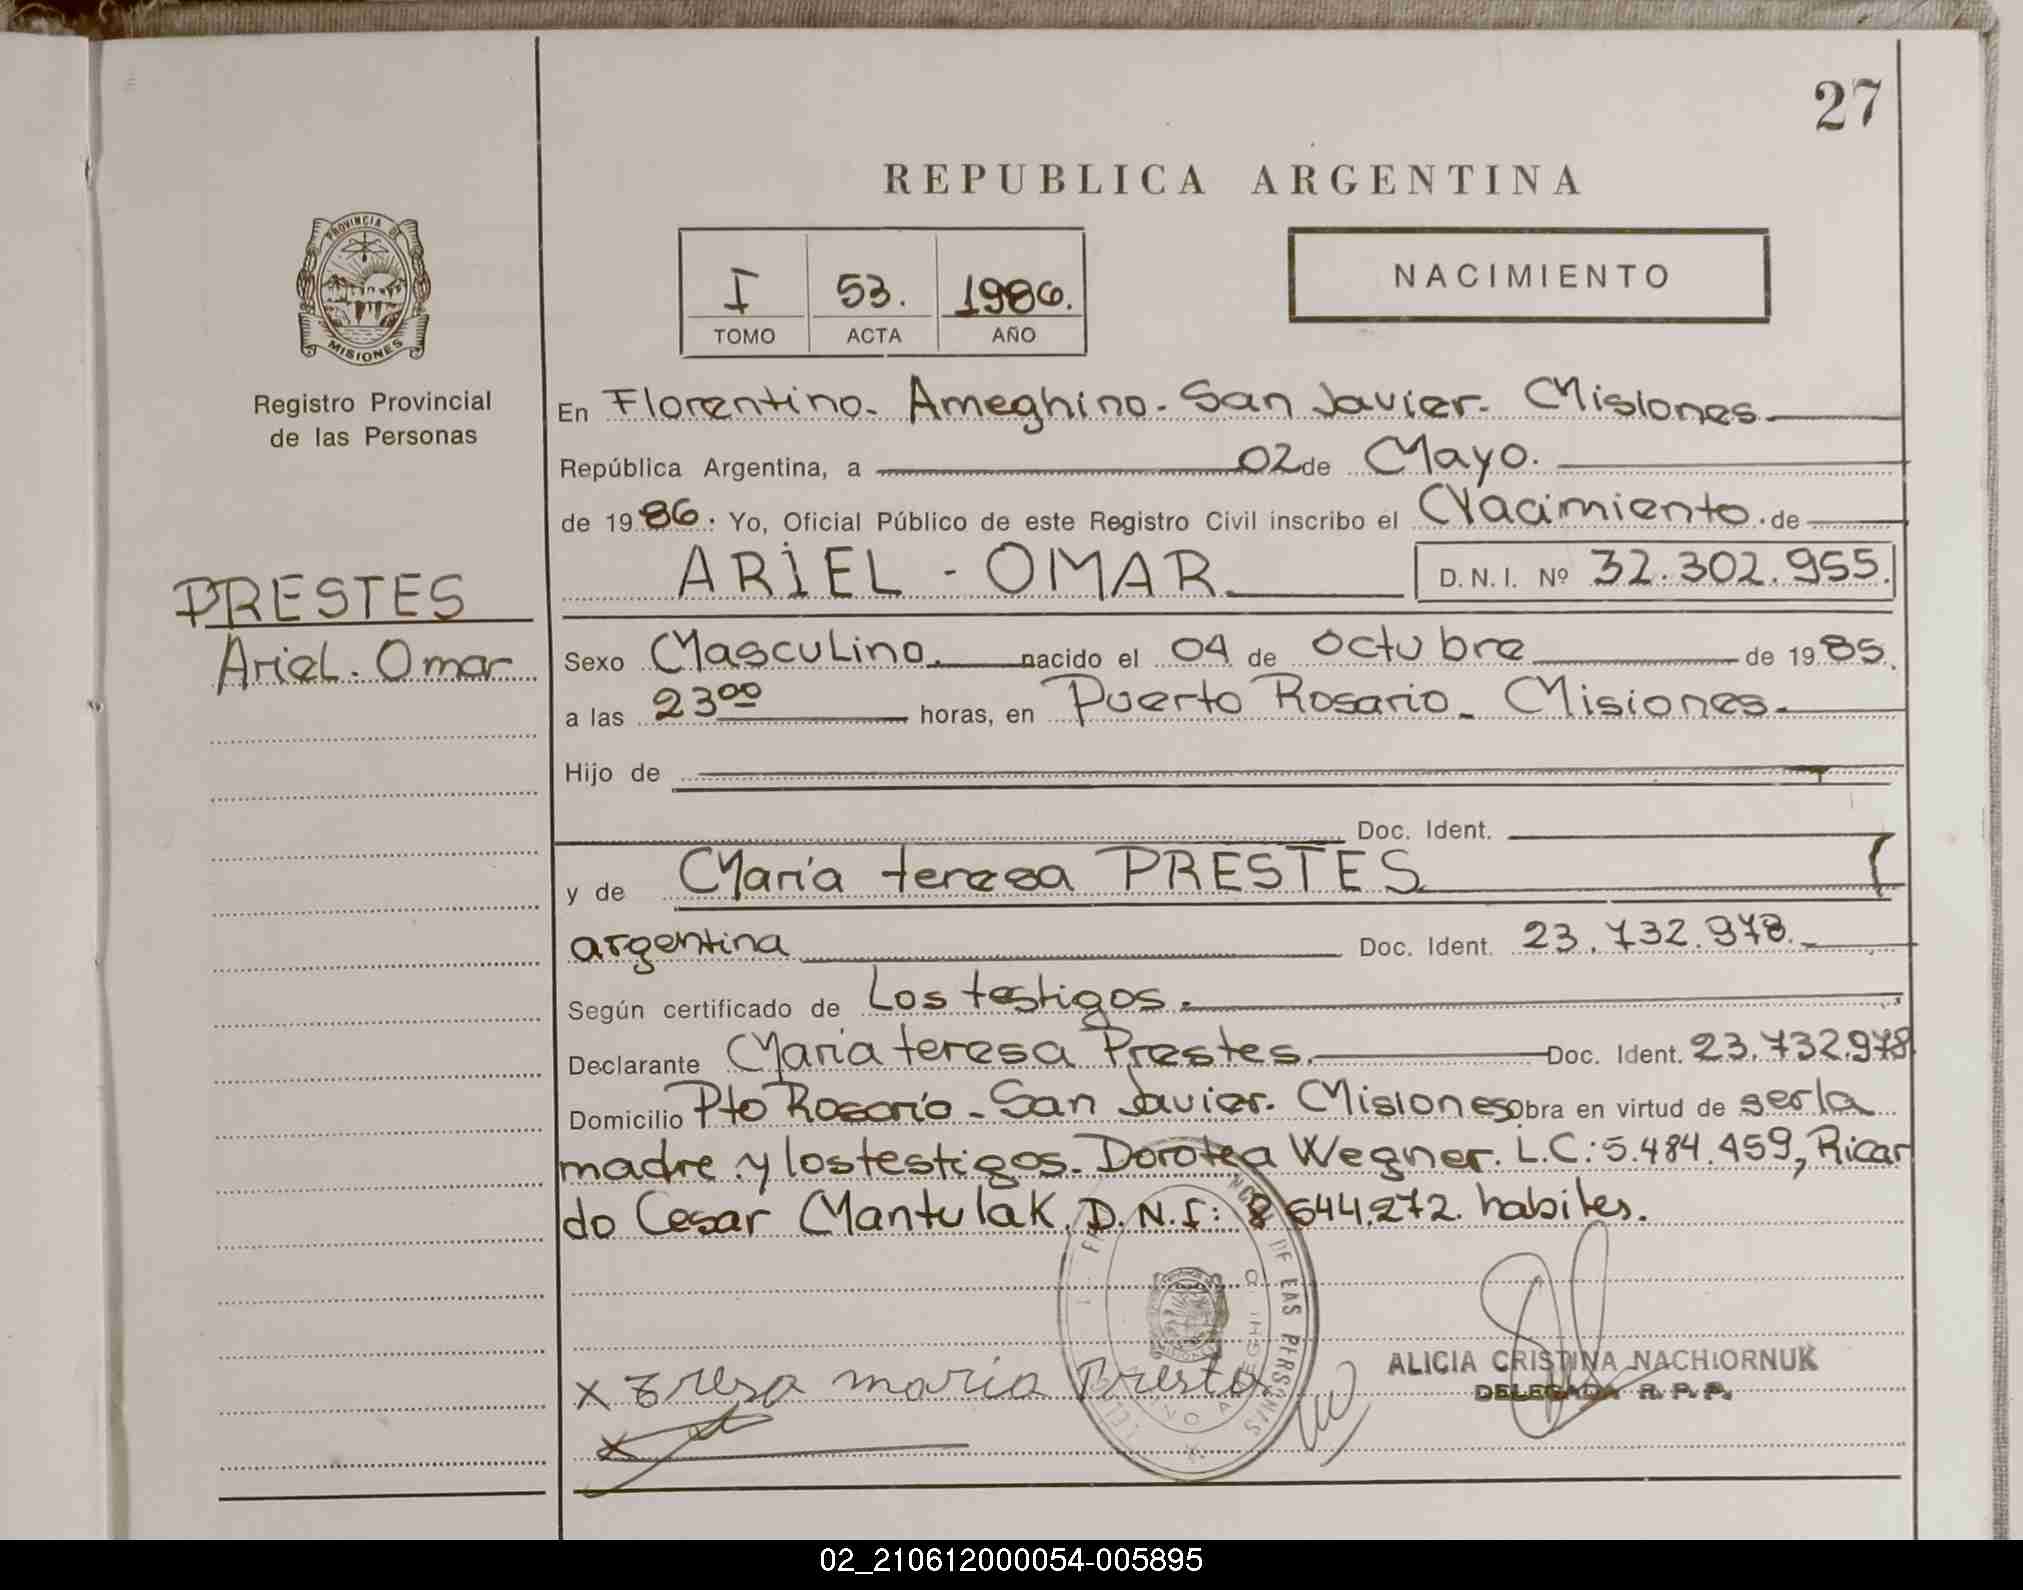 27
REPUBLICA ARGENTINA
PROVINCIA DE
MISIONES
Registro Provincial
de las Personas
I 53. 1986.
TOMO ACTA AÑO
NACIMIENTO
En Florentino - Ameghino - San Javier - Misiones
República Argentina, a 02 de Mayo.
de 19 86. Yo, Oficial Público de este Registro Civil inscribo el Nacimiento. de
ARIEL - OMAR D. N. I. Nº 32.302.955.
PRESTES
Ariel. Omar
Sexo Masculino. nacido el 04 de octubre de 19 85.
a las 23 00 horas, en Puerto Rosario - Misiones.
Hijo de
Doc. Ident.
y de María teresa PRESTES
argentina Doc. Ident. 23.732.978.
Según certificado de Los testigos.
Declarante María teresa Prestes. Doc. Ident. 23.732.978
Domicilio Pto Rosario - San Javier. Misiones obra en virtud de ser la
madre y los testigos. Dorotea Wegner. L.C: 5.484.459, Ricar
do Cesar Mantulak. D.N.I: 8644.272. habiles.
DE LAS PERSONAS
ALICIA CRISTINA NACHIORNUK
DELEGADA R. P. P.
x Teresa maria Presta
x
02_210612000054-005895